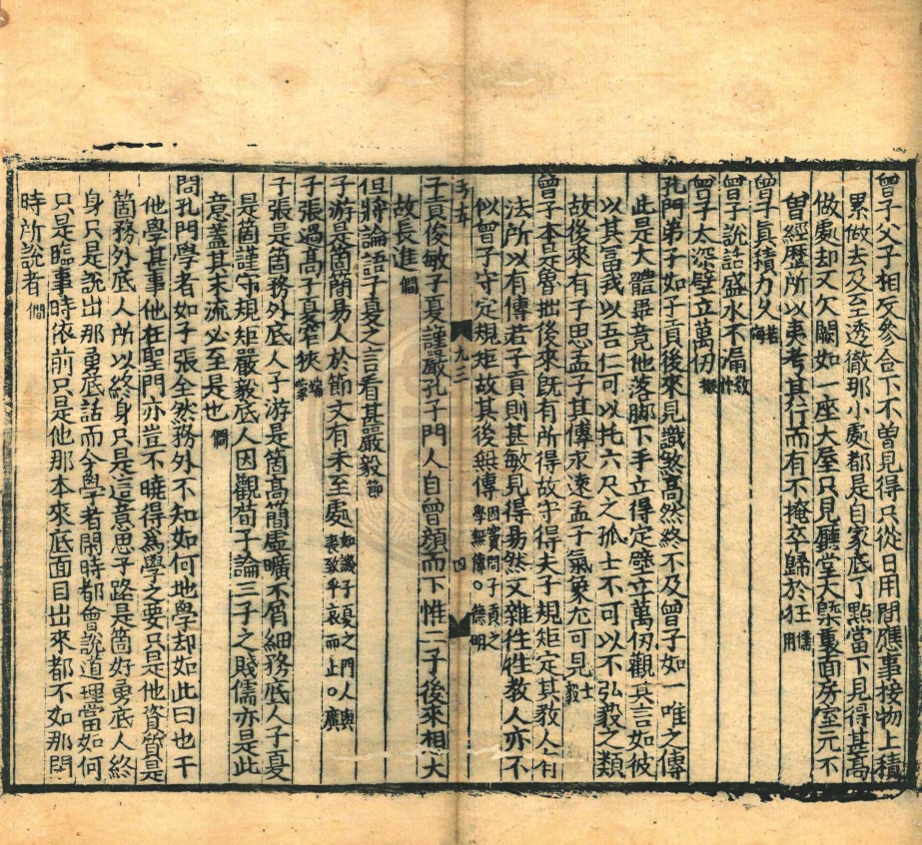 曾子父子相反參合下不曾見得只從日用間應事接物上積
累做去及至透徹那小處都是自家底了點當下見得甚高
做處却又欠闕如一座大屋只見廳堂大槩裏面房室元不
曾經歷所以夷考其行而有不掩卒歸於狂儒用
曾子真積力久若海
曾子說話盛水不漏敬仲
曾子太深壁立萬仞
孔門弟子如子貢後來見識煞高然終不及曾子如一唯之傳
此是大體畢竟他落脚下手立得定壁立萬仞觀其言如彼
以其富我以吾仁可以托六尺之孤士不可以不弘毅之類
故後來有子思孟子其傳永遠孟子氣象尤可見士毅
曾子本是魯拙後來旣有所得故守得夫子規矩定其教人有
法所以有傳若子貢則甚敏見得易然又雜往往教人亦不
似曾子守定規矩故其後無傳因竇問子貢之學無傳。德明
九三
四
子貢俊敏子夏謹嚴孔子門人自曾顏而下惟二子後來想大
故長進僩
但將論語子夏之言看甚嚴毅節
子游是箇簡易人於節文有未至處如譏子夏之門人與喪致乎哀而止。廣
子張過高子夏窄狹端蒙
子張是箇務外底人子游是箇高簡虛曠不屑細務底人子夏
是箇謹守規矩嚴毅底人因觀荀子論三子之賤儒亦是此
意蓋其末流必至是也僩
問孔門學者如子張全然務外不知如何地學却如此曰也干
他學甚事他在聖門亦豈不曉得爲學之要只是他資質是
箇務外底人所以終身只是這意思子路是箇好勇底人終
身只是說出那勇底話而今學者閑時都會說道理當如何
只是臨事時依前只是他那本來底面目出來都不如那閑
時所說者僩